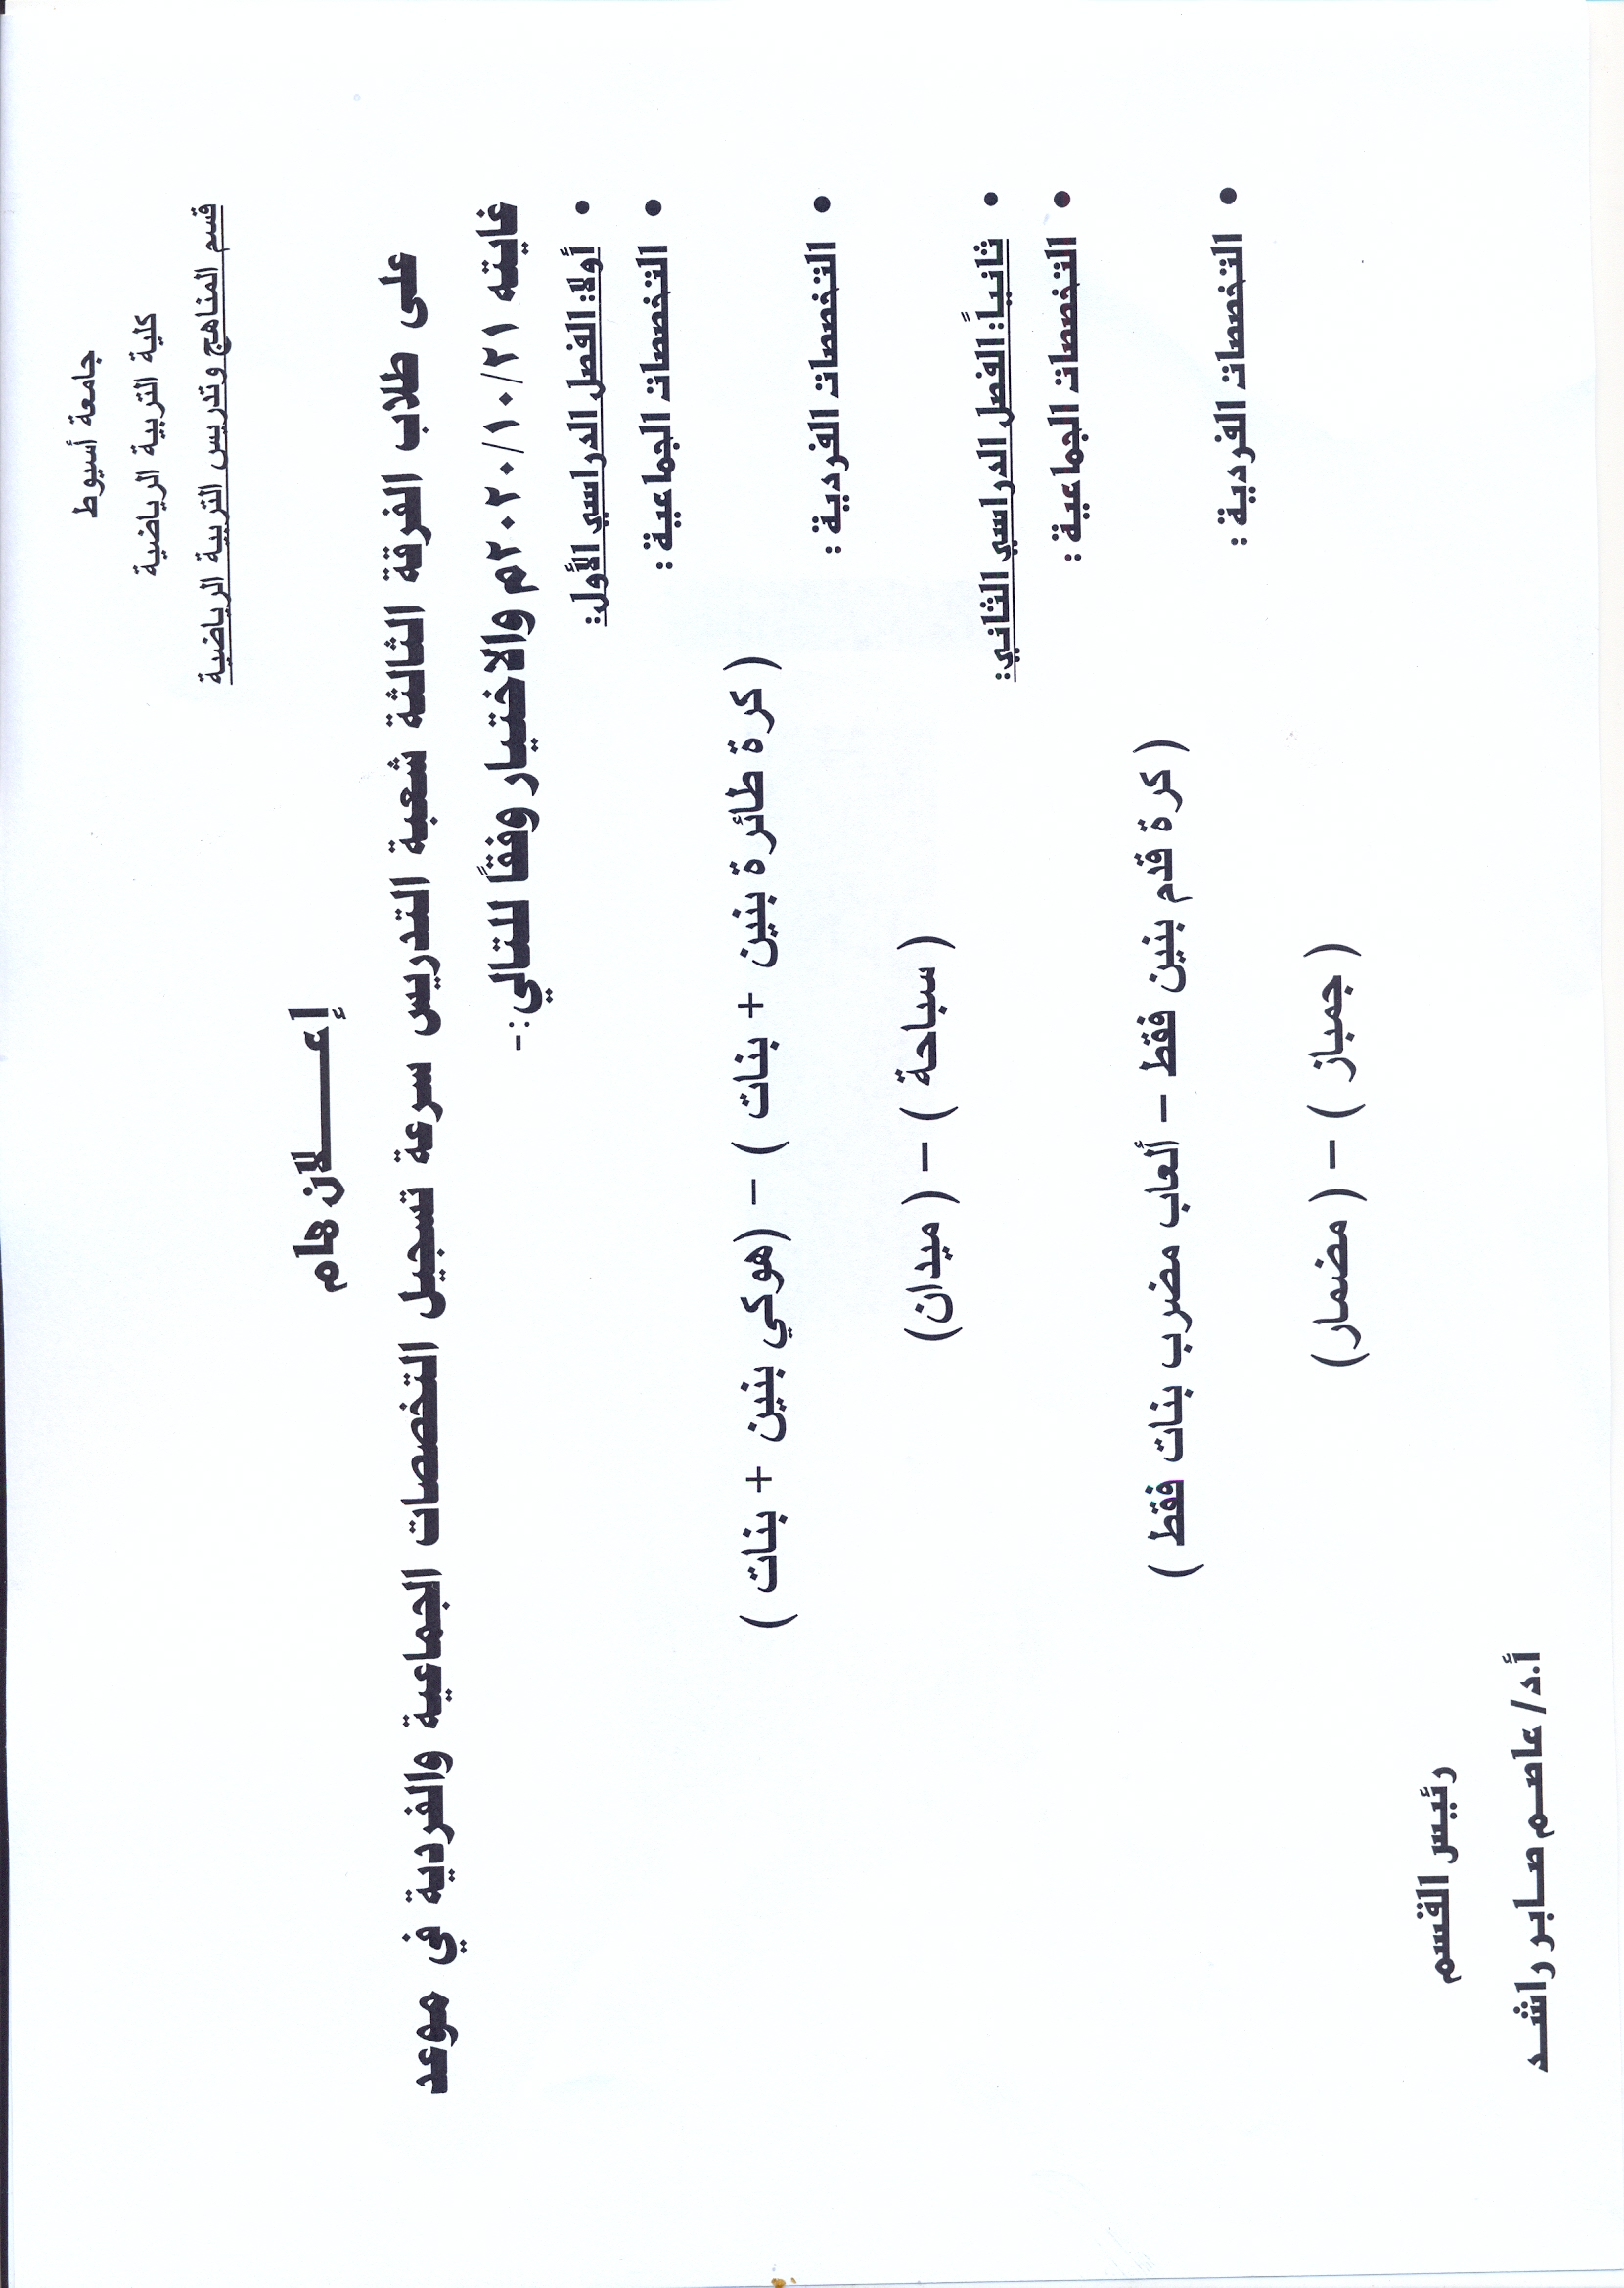 جامعة أسيوط
كلية التربية الرياضية
قسم المناهج وتدريس التربية الرياضية
إعــــــــلان هام
على طلاب الفرقة الثالثة شعبة التدريس سرعة تسجيل التخصصات الجماعية والفردية في موعد
غايته ٢٠٢٠/١٠/٢١م والاختيار وفقاً للتالي:-
• أولا: الفصل الدراسي الأول:
• التخصصات الجماعية :
( كرة طائرة بنين + بنات ) – (هوكي بنين + بنات )
• التخصصات الفردية :
( سباحة ) – ( ميدان)
• ثانياً: الفصل الدراسي الثاني:
• التخصصات الجماعية :
( كرة قدم بنين فقط – ألعاب مضرب بنات فقط )
• التخصصات الفردية :
( جمباز ) – ( مضمار)
رئيس القسم
أ.د/ عاصم صابر راشد